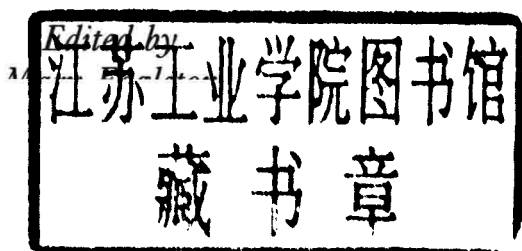 Edited by
江苏工业学院图书馆
藏书章